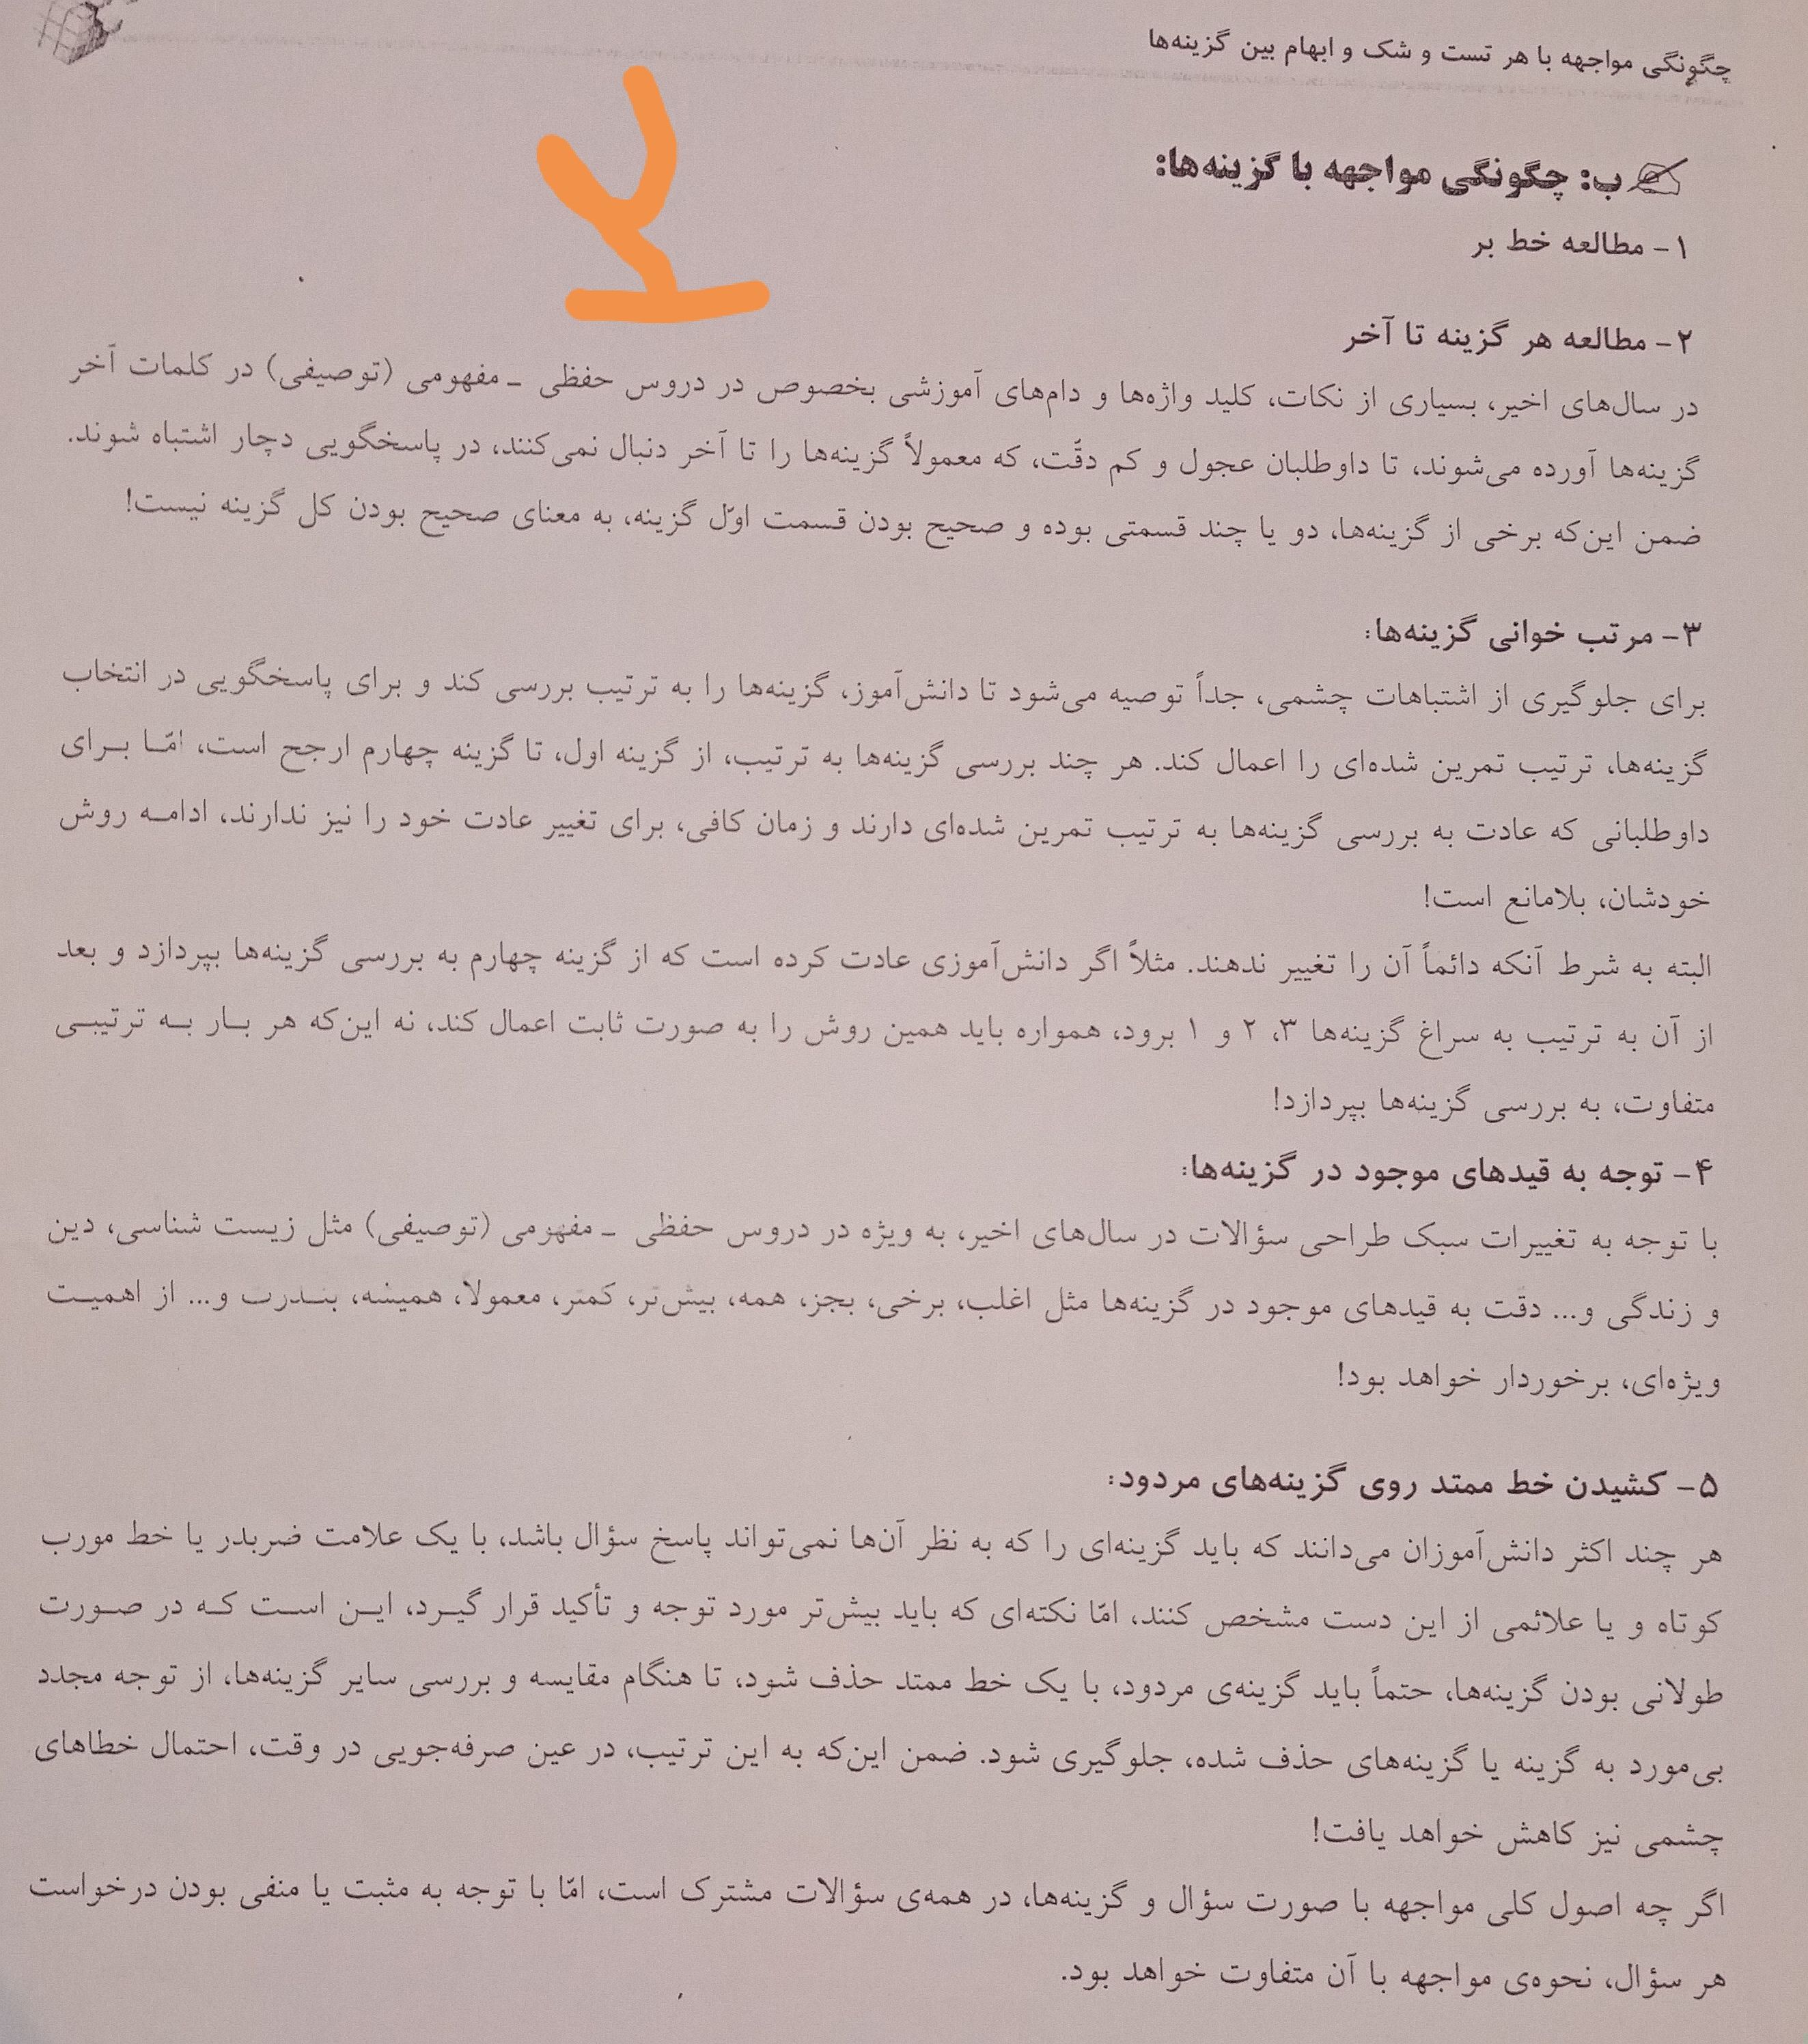 چگونگی مواجهه با هر تست و شک و ابهام بین گزینه‌ها
ب: چگونگی مواجهه با گزینه‌ها:
۱- مطالعه خط بر
۲- مطالعه هر گزینه تا آخر
در سال‌های اخیر، بسیاری از نکات، کلید واژه‌ها و دام‌های آموزشی بخصوص در دروس حفظی - مفهومی (توصیفی) در کلمات آخر
گزینه‌ها آورده می‌شوند، تا داوطلبان عجول و کم دقّت، که معمولاً گزینه‌ها را تا آخر دنبال نمی‌کنند، در پاسخگویی دچار اشتباه شوند.
ضمن این‌که برخی از گزینه‌ها، دو یا چند قسمتی بوده و صحیح بودن قسمت اوّل گزینه، به معنای صحیح بودن کل گزینه نیست!
۳- مرتب خوانی گزینه‌ها:
برای جلوگیری از اشتباهات چشمی، جداً توصیه می‌شود تا دانش‌آموز، گزینه‌ها را به ترتیب بررسی کند و برای پاسخگویی در انتخاب
گزینه‌ها، ترتیب تمرین شده‌ای را اعمال کند. هر چند بررسی گزینه‌ها به ترتیب، از گزینه اول، تا گزینه چهارم ارجح است، امّا برای
داوطلبانی که عادت به بررسی گزینه‌ها به ترتیب تمرین شده‌ای دارند و زمان کافی، برای تغییر عادت خود را نیز ندارند، ادامه روش
خودشان، بلامانع است!
البته به شرط آنکه دائماً آن را تغییر ندهند. مثلاً اگر دانش‌آموزی عادت کرده است که از گزینه چهارم به بررسی گزینه‌ها بپردازد و بعد
از آن به ترتیب به سراغ گزینه‌ها ۳، ۲ و ۱ برود، همواره باید همین روش را به صورت ثابت اعمال کند، نه این‌که هر بار به ترتیبی
متفاوت، به بررسی گزینه‌ها بپردازد!
۴- توجه به قیدهای موجود در گزینه‌ها:
با توجه به تغییرات سبک طراحی سؤالات در سال‌های اخیر، به ویژه در دروس حفظی - مفهومی (توصیفی) مثل زیست شناسی، دین
و زندگی و... دقت به قیدهای موجود در گزینه‌ها مثل اغلب، برخی، بجز، همه، بیش‌تر، کمتر، معمولا، همیشه، بندرت و... از اهمیت
ویژه‌ای، برخوردار خواهد بود!
۵- کشیدن خط ممتد روی گزینه‌های مردود:
هر چند اکثر دانش‌آموزان می‌دانند که باید گزینه‌ای را که به نظر آن‌ها نمی‌تواند پاسخ سؤال باشد، با یک علامت ضربدر یا خط مورب
کوتاه و یا علائمی از این دست مشخص کنند، امّا نکته‌ای که باید بیش‌تر مورد توجه و تأکید قرار گیرد، این است که در صورت
طولانی بودن گزینه‌ها، حتماً باید گزینه‌ی مردود، با یک خط ممتد حذف شود، تا هنگام مقایسه و بررسی سایر گزینه‌ها، از توجه مجدد
بی‌مورد به گزینه یا گزینه‌های حذف شده، جلوگیری شود. ضمن این‌که به این ترتیب، در عین صرفه‌جویی در وقت، احتمال خطاهای
چشمی نیز کاهش خواهد یافت!
اگر چه اصول کلی مواجهه با صورت سؤال و گزینه‌ها، در همه‌ی سؤالات مشترک است، امّا با توجه به مثبت یا منفی بودن درخواست
هر سؤال، نحوه‌ی مواجهه با آن متفاوت خواهد بود.